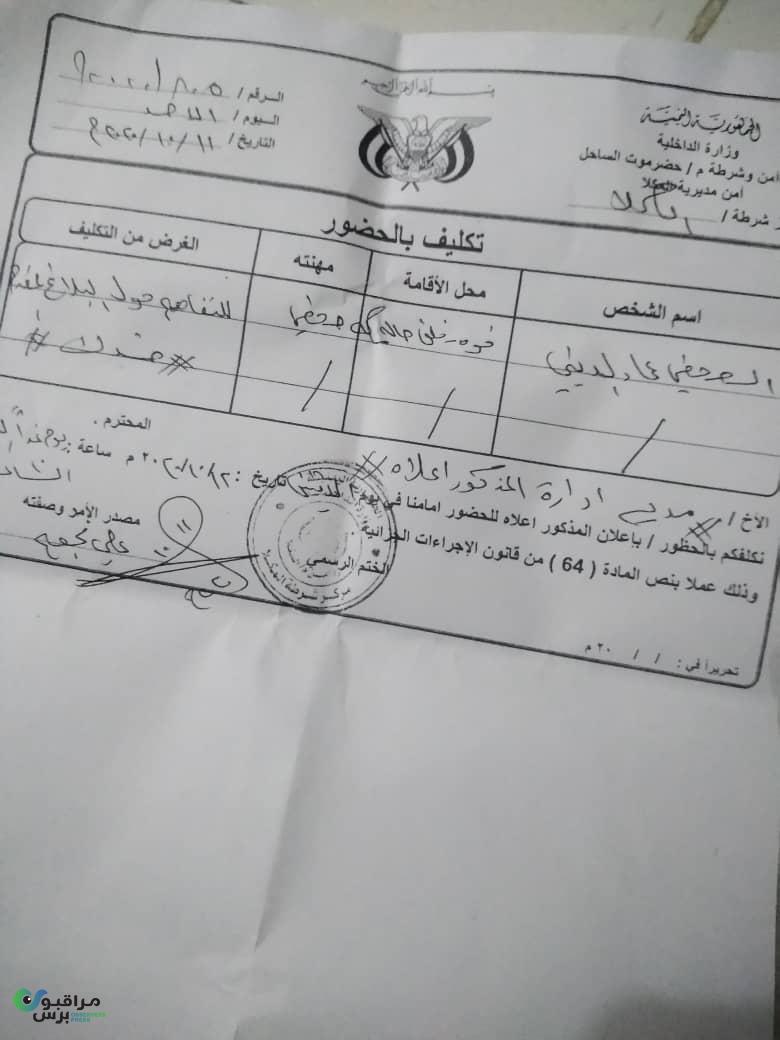 الجمهورية اليمنية
وزارة الداخلية
امن وشرطة م / حضرموت الساحل
أمن مديرية المكلا
شرطة / المكلا
بسم الله الرحمن الرحيم
الرقم /
اليوم / الاحد
التاريخ / ١١/١٠/٢٠٢٠م
تكليف بالحضور
اسم الشخص
محل الأقامة
مهنته
الغرض من التكليف
الصحفي عماد الديني
فوه
صحفي
للتفاهم حول البلاغ
ضدك #
الأخ / مدير ادارة المذكور اعلاه # المحترم .
نكلفكم بالحظور / بإعلان المذكور اعلاه للحضور امامنا في يوم تاريخ : ١٢/١٠/٢٠٢٠ م ساعة :
وذلك عملا بنص المادة ( 64 ) من قانون الإجراءات الجزائية .
الختم الرسمي
مركز شرطة المكلا
مصدر الأمر وصفته
تحريراً في : / / ٢٠ م
مراقبون
برس
OBSERVERS
PRESS